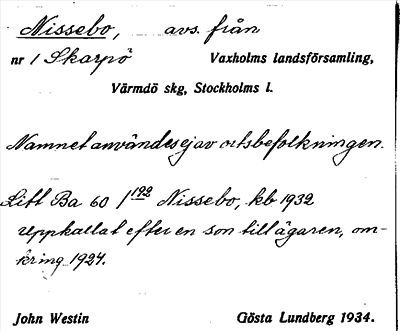 Nissebo, avs. från
nr 1 Skarpö Vaxholms landsförsamling,
Värmdö skg, Stockholms l.
Namnet användes ej av ortsbefolkningen.
Litt Ba 60 / 192 Nissebo, kb 1932
uppkallat efter en son till ägaren, om-
kring 1924.
John Westin Gösta Lundberg 1934.